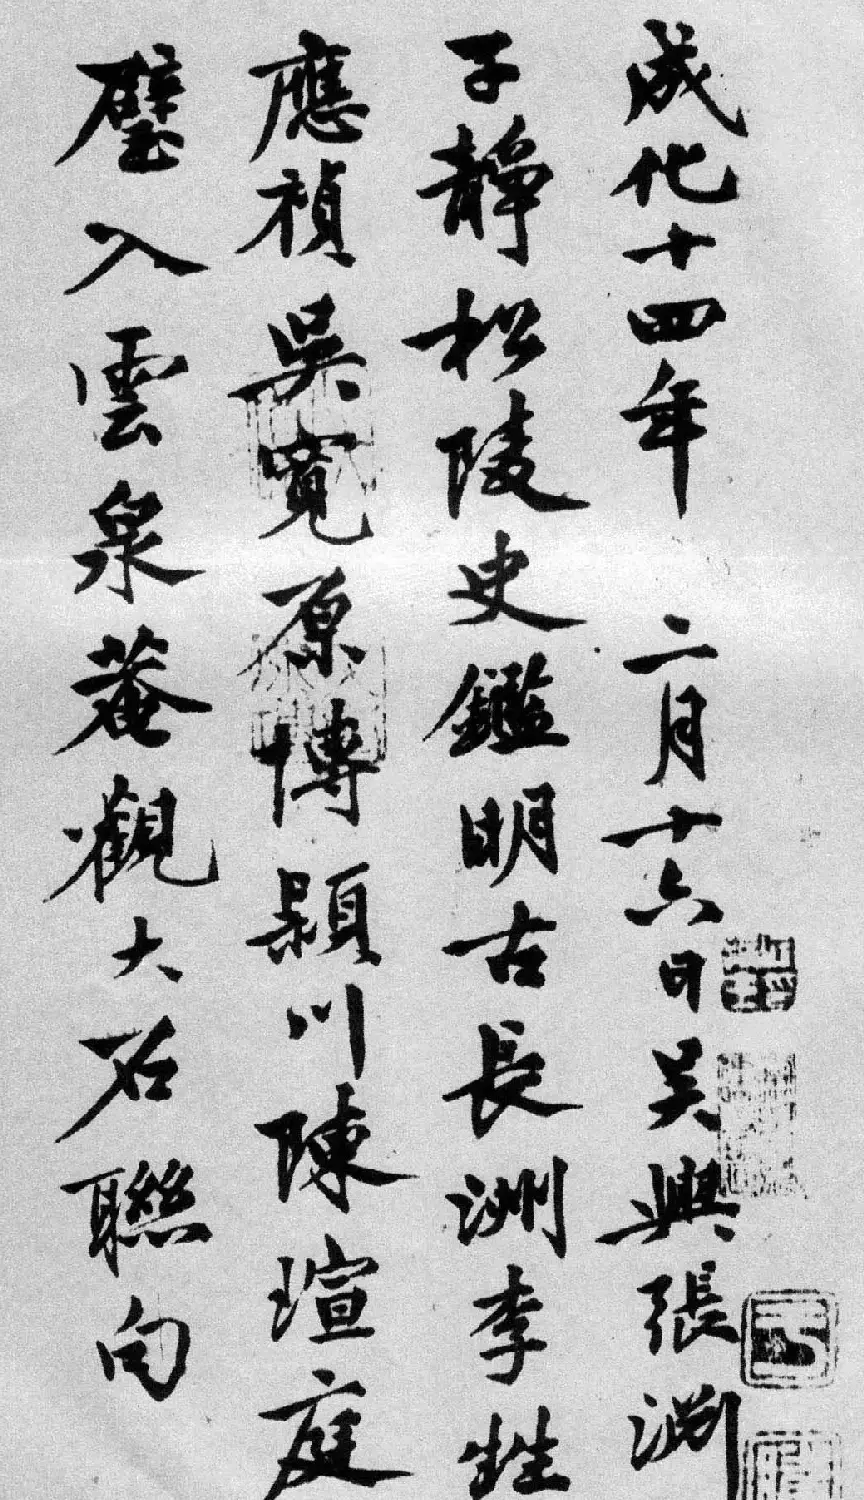 成化十四年 二月十六日吴興張渊
子静松陵史鑑明古長洲李甡
應禎吳寬原博潁川陳瑄庭
璧入雲泉菴觀大石聯句